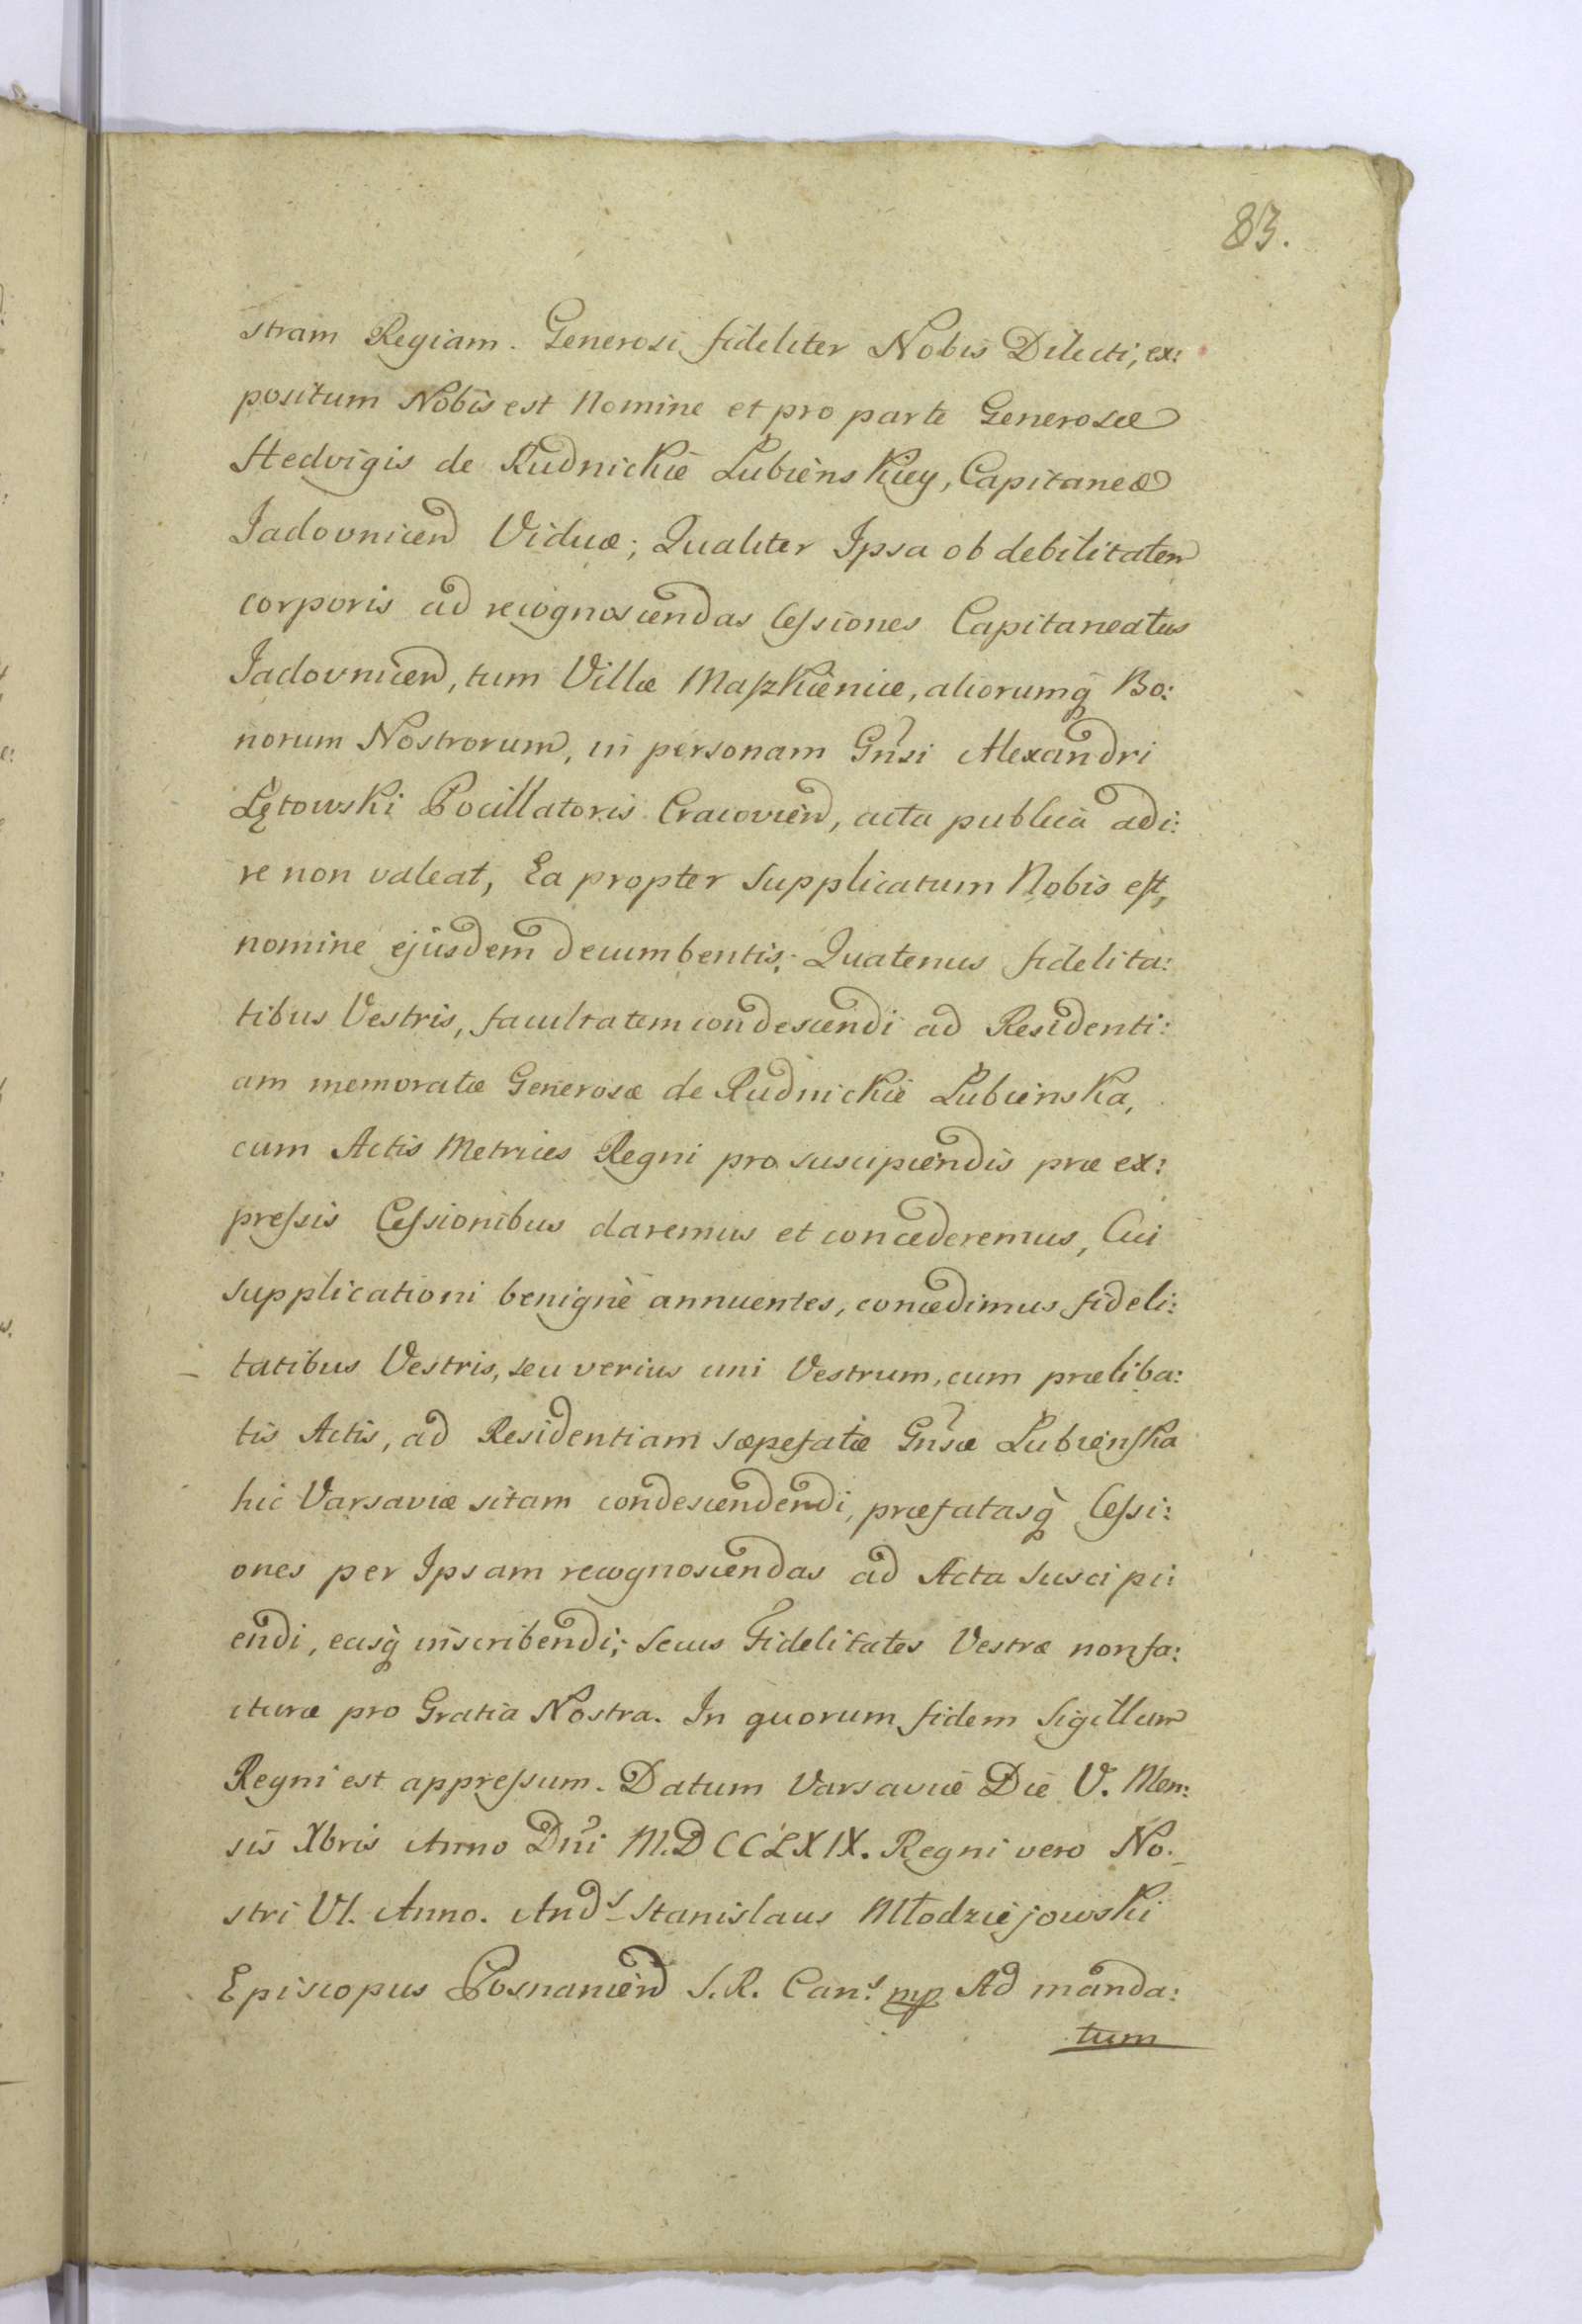 83.
stram Regiam. Generosi fideliter Nobis Dilecti, ex:
positum Nobis est Nomine et pro parte Generosæ
Hedvigis de Rudnickie Lubienskiey, Capitaneæ
Jadovnicen Viduæ; Qualiter Ipsa ob debilitatem
corporis ad recognoscendas Cessiones Capitaneatus
Jadovnicen, tum Villæ Maszkienice, aliorumq Bo:
norum Nostrorum, in personam Gnsi Alexandri
Łętowski Pocillatoris Cracovien, acta publica adi:
re non valeat, Ea propter Supplicatum Nobis est,
nomine ejusdem decumbentis; Quatenus fidelita:
tibus Vestris, facultatem condescendi ad Residenti:
am memoratæ Generosæ de Rudnickie Lubienska,
cum Actis Metrices Regni pro suscipiendis præ ex:
pressis Cessionibus daremus et concederemus, Cui
supplicationi benignè annuentes, concedimus fideli:
tatibus Vestris, seu verius uni Vestrum, cum præliba:
tis Actis, ad Residentiam sæpefatæ Gnsæ Lubienska
hic Varsaviæ sitam condescendendi, præfatasq Cessi:
ones per Ipsam recognoscendas ad Acta Suscipi:
endi, easq inscribendi; Secus Fidelitates Vestræ non fa:
cturæ pro Gratia Nostra. In quorum fidem Sigillum
Regni est appressum. Datum Varsaviæ Die V. Men:
sis Xbris Anno Dni M.DCCLXIX. Regni vero No:
stri VI. Anno. Andˢ Stanislaus Młodziejowski
Episcopus Posnanien S.R. Canˢ mp Ad manda:
tum